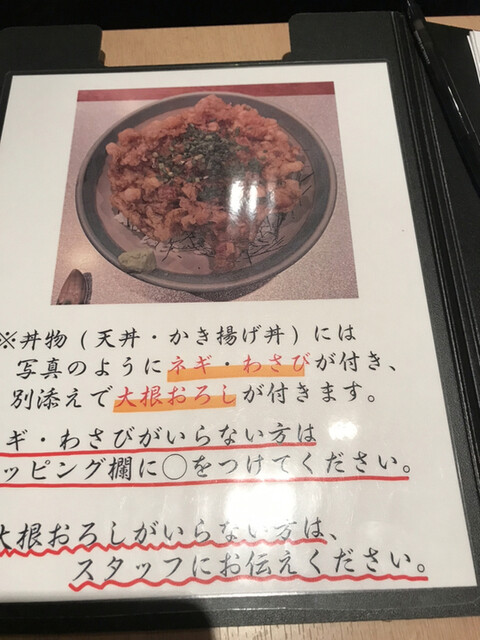 ※丼物（天丼・かき揚げ丼）には
写真のようにネギ・わさびが付き、
別添えで大根おろしが付きます。
ギ・わさびがいらない方は
ッピング欄に○をつけてください。
大根おろしがいらない方は、
スタッフにお伝えください。